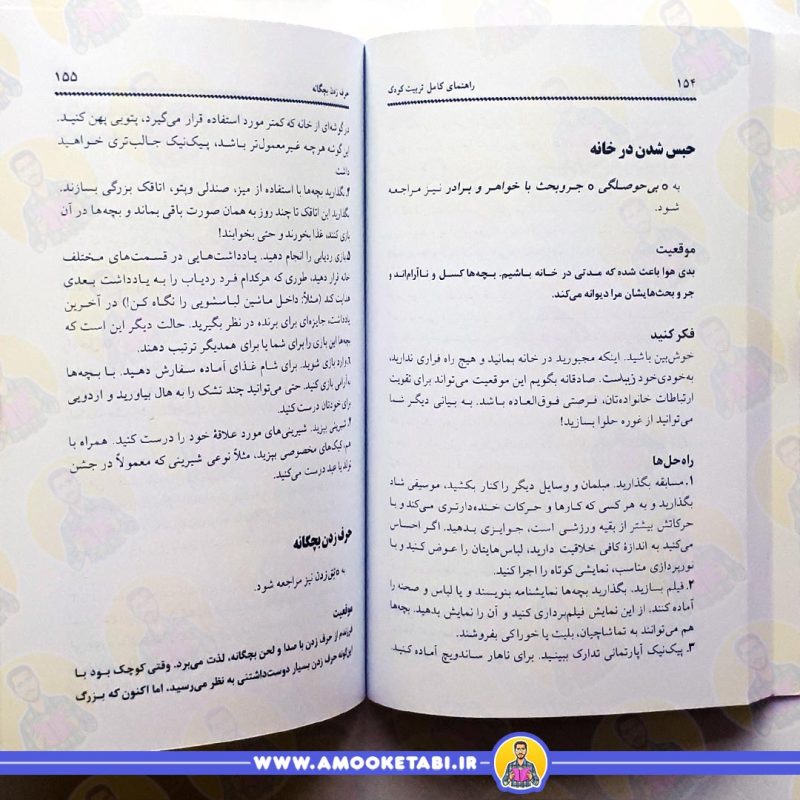 ۱۵۴
راهنمای کامل تربیت کودک
حبس شدن در خانه
به ٥ بی‌حوصلگی ٥ جروبحث با خواهر و برادر نیز مراجعه
شود.
موقعیت
بدی هوا باعث شده که مدتی در خانه باشیم. بچه‌ها کسل و ناآرام‌اند و
جر و بحث‌هایشان مرا دیوانه می‌کند.
فکر کنید
خوش‌بین باشید. اینکه مجبورید در خانه بمانید و هیچ راه فراری ندارید،
به‌خودی‌خود زیباست. صادقانه بگویم این موقعیت می‌تواند برای تقویت
ارتباطات خانواده‌تان، فرصتی فوق‌العاده باشد. به بیانی دیگر شما
می‌توانید از غوره حلوا بسازید!
راه‌حل‌ها
۱. مسابقه بگذارید. مبلمان و وسایل دیگر را کنار بکشید، موسیقی شاد
بگذارید و به هر کسی که کارها و حرکات خنده‌دارتری می‌کند و یا
حرکاتش بیشتر از بقیه ورزشی است، جوایزی بدهید. اگر احساس
می‌کنید به اندازهٔ کافی خلاقیت دارید، لباس‌هایتان را عوض کنید و با
نورپردازی مناسب، نمایشی کوتاه را اجرا کنید.
۲. فیلم بسازید. بگذارید بچه‌ها نمایشنامه بنویسند و یا لباس و صحنه را
آماده کنند. از این نمایش فیلم‌برداری کنید و آن را نمایش بدهید. بچه‌ها
هم می‌توانند به تماشاچیان، بلیت یا خوراکی بفروشند.
۳. پیک‌نیک آپارتمانی تدارک ببینید. برای ناهار ساندویچ آماده کنید.
حرف زدن بچگانه
۱۵۵
در گوشه‌ای از خانه که کمتر مورد استفاده قرار می‌گیرد، پتویی پهن کنید.
این گوشه هرچه غیرمعمول‌تر باشد، پیک‌نیک جالب‌تری خواهید
داشت
۴. بگذارید بچه‌ها با استفاده از میز، صندلی و پتو، اتاقک بزرگی بسازند.
بگذارید این اتاقک تا چند روز به همان صورت باقی بماند و بچه‌ها در آن
بازی کنند، غذا بخورند و حتی بخوابند!
۵. بازی ردیابی را انجام دهید. یادداشت‌هایی در قسمت‌های مختلف
خانه قرار دهید، طوری که هرکدام فرد ردیاب را به یادداشت بعدی
هدایت کند (مثلاً: داخل ماشین لباسشویی را نگاه کن!) در آخرین
یادداشت، جایزه‌ای برای برنده در نظر بگیرید. حالت دیگر این است که
بچه‌ها این بازی را برای شما یا برای همدیگر ترتیب دهند.
۶. وارد بازی شوید. برای شام غذای آماده سفارش دهید. با بچه‌ها
به آرامی بازی کنید. حتی می‌توانید چند تشک را به هال بیاورید و اردویی
برای خودتان درست کنید.
۷. شیرینی بپزید. شیرینی‌های مورد علاقهٔ خود را درست کنید. همراه با
هم، کیک‌های مخصوصی بپزید، مثلاً نوعی شیرینی که معمولاً در جشن
تولد یا عید درست می‌کنید.
حرف زدن بچگانه
به ٥ نق زدن نیز مراجعه شود.
موقعیت
فرزندم از حرف زدن با صدا و لحن بچگانه، لذت می‌برد. وقتی کوچک بود با
این‌گونه حرف زدن بسیار دوست‌داشتنی به نظر می‌رسید، اما اکنون که بزرگ
WWW.AMOOKETABI.IR